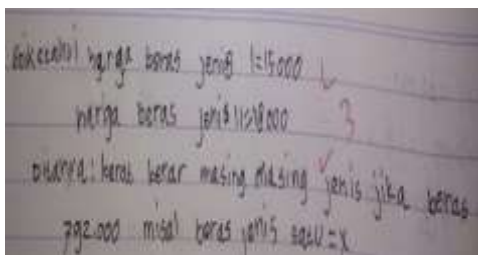 Diketahui harga beras jenis I=15000
harga beras jenis II=18000 3
Ditanya: berat berar masing masing jenis jika beras
792.000 misal beras jenis satu = x